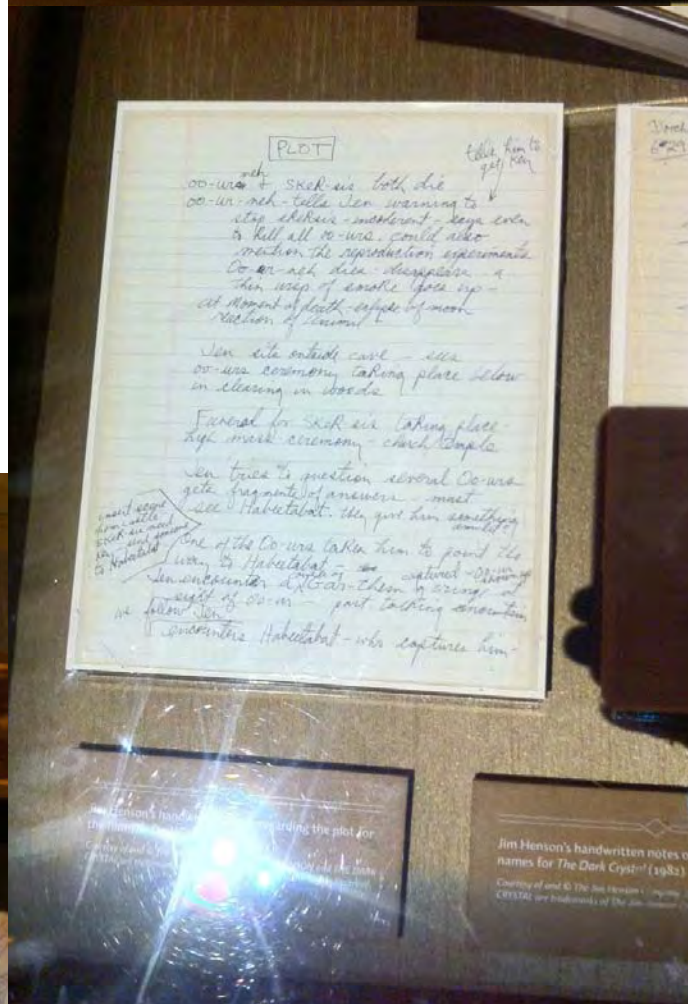 PLOT
tells him to
get Ken
neh
oo-urs & SKeR-sis both die
oo-ur-neh-tells Jen warning to
stop skeksis - incoherent - says even
to kill all oo-urs. could also
mention the reproduction experiments
Oo-ur-neh dies - disappears - a
thin wisp of smoke goes up -
at moment of death - eclipse of moon
reaction of
Jen sits outside cave - sees
oo-urs ceremony taking place below
in clearing in woods
Funeral for SKeR sis taking place -
high mass ceremony - church temple
Jen tries to question several Oo-urs
gets fragments of answers - must
see Habeetabat. they give him something
amulet?
insert scene
SKeR-sis need
send someone
to Habeetabat
One of the Oo-urs takes him to point the
way to Habeetabat -
captured Oo-ur
Jen encounter Gar-them
sight of oo-ur - part talking mountain
we follow Jen
encounters Habeetabat - who captures him -
March
6 29
Jim Henson's regarding the plot for
Jim Henson's handwritten notes o
names for The Dark Crystal (1982).
Courtesy of and © The Jim Henson
CRYSTAL are trademarks of The Jim Henson